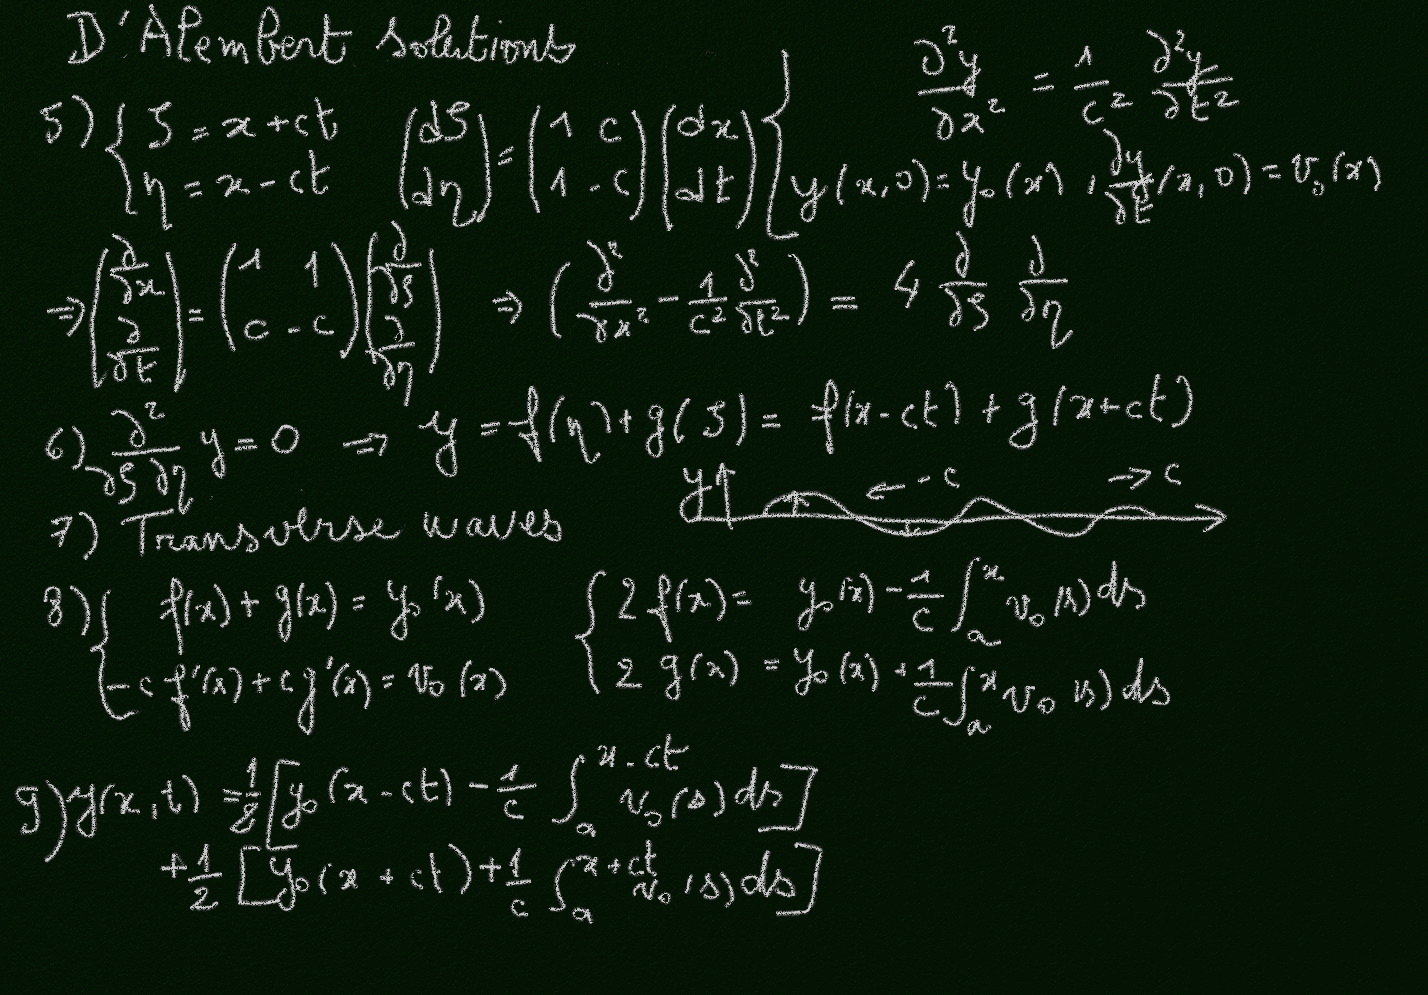 D'Alembert solutions
∂²y/∂x² = 1/c² ∂²y/∂t²
5) { ξ = x + ct    (dξ dη) = (1 c; 1 -c) (dx dt)
η = x - ct    y(x,0) = y₀(x) , ∂y/∂t (x,0) = v₀(x)
⇒ (∂/∂x ∂/∂t) = (1 1; c -c) (∂/∂ξ ∂/∂η) ⇒ (∂²/∂x² - 1/c² ∂²/∂t²) = 4 ∂/∂ξ ∂/∂η
6) ∂²/∂ξ∂η y = 0 ⇒ y = f(η) + g(ξ) = f(x-ct) + g(x+ct)
y ← -c → c
7) Transverse waves
8) { f(x) + g(x) = y₀(x)    { 2 f(x) = y₀(x) - 1/c ∫ₐˣ v₀(s) ds
-c f'(x) + c g'(x) = v₀(x)    2 g(x) = y₀(x) + 1/c ∫ₐˣ v₀(s) ds
9) y(x,t) = 1/2 [y₀(x-ct) - 1/c ∫ₐ^(x-ct) v₀(s) ds]
+ 1/2 [y₀(x+ct) + 1/c ∫ₐ^(x+ct) v₀(s) ds]